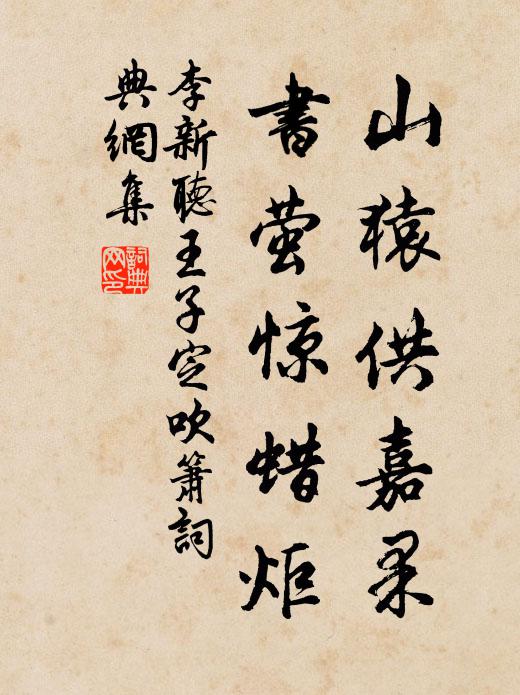 山猿供嘉果
書萤惊蜡炬
李新聽王子定吹簫詞
典網集
詞典
网印